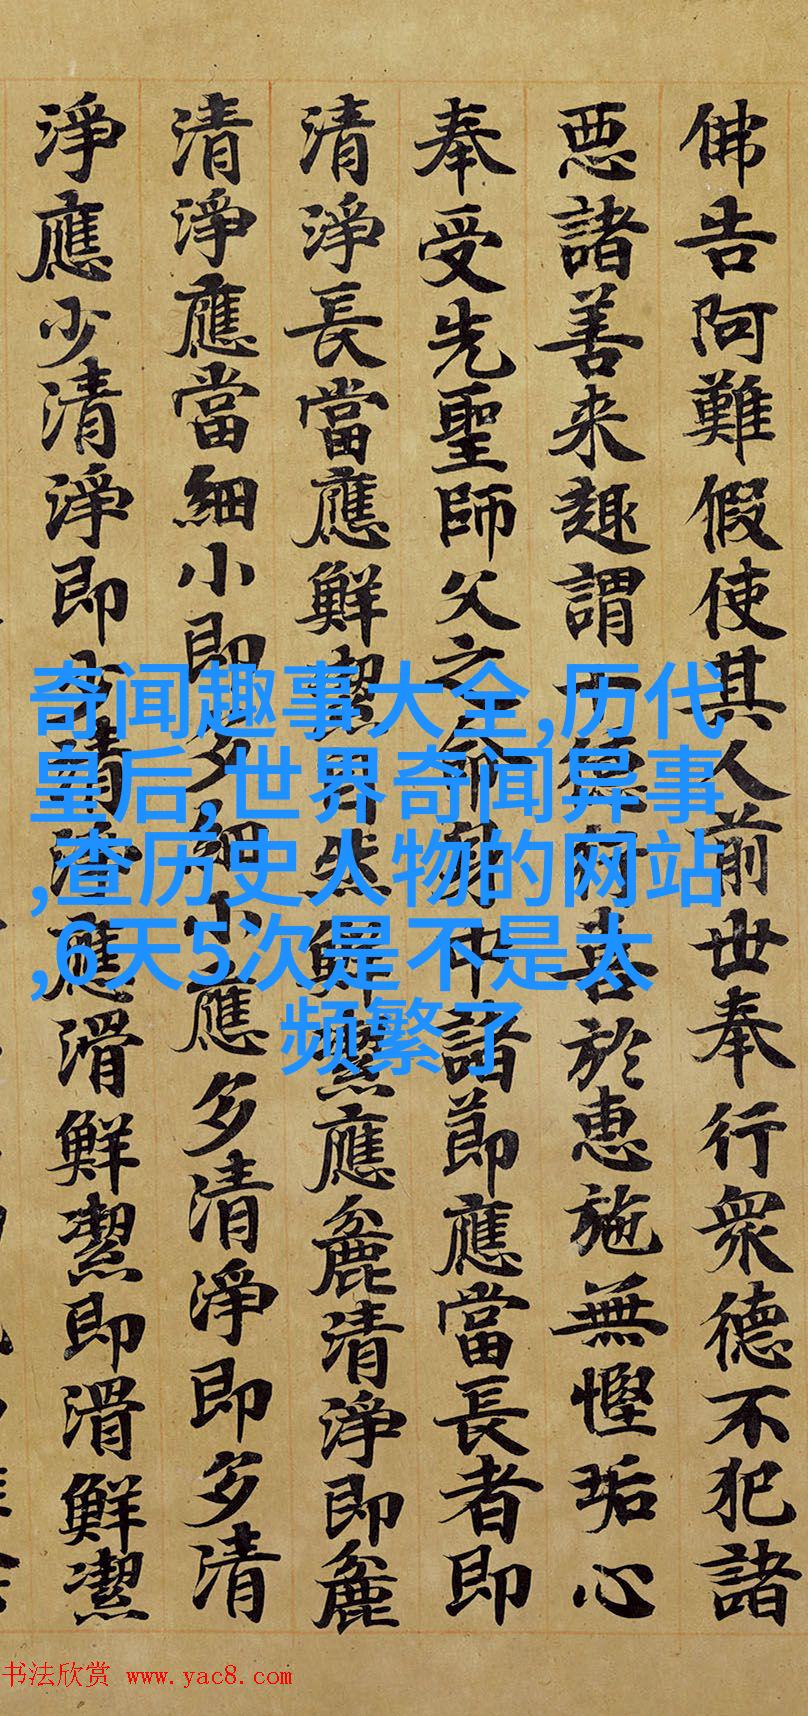 佛告阿難假使其人前世奉行眾德不犯諸
悪諸善来趣謂德好喜於惠施無慳垢心
奉受先聖師父之命身中諸節應當長者即
清淨長當應鮮潔自然鮮潔應麁清淨即麁
清淨應當細小即多細小應多清淨即多清
淨應少清淨即少清淨應滑鮮潔即滑鮮潔
奇闻趣事大全,历代
皇后,世界奇闻异事
,查历史人物的网站
,6天5次是不是太
频繁了
书法欣赏 www.yac8.com